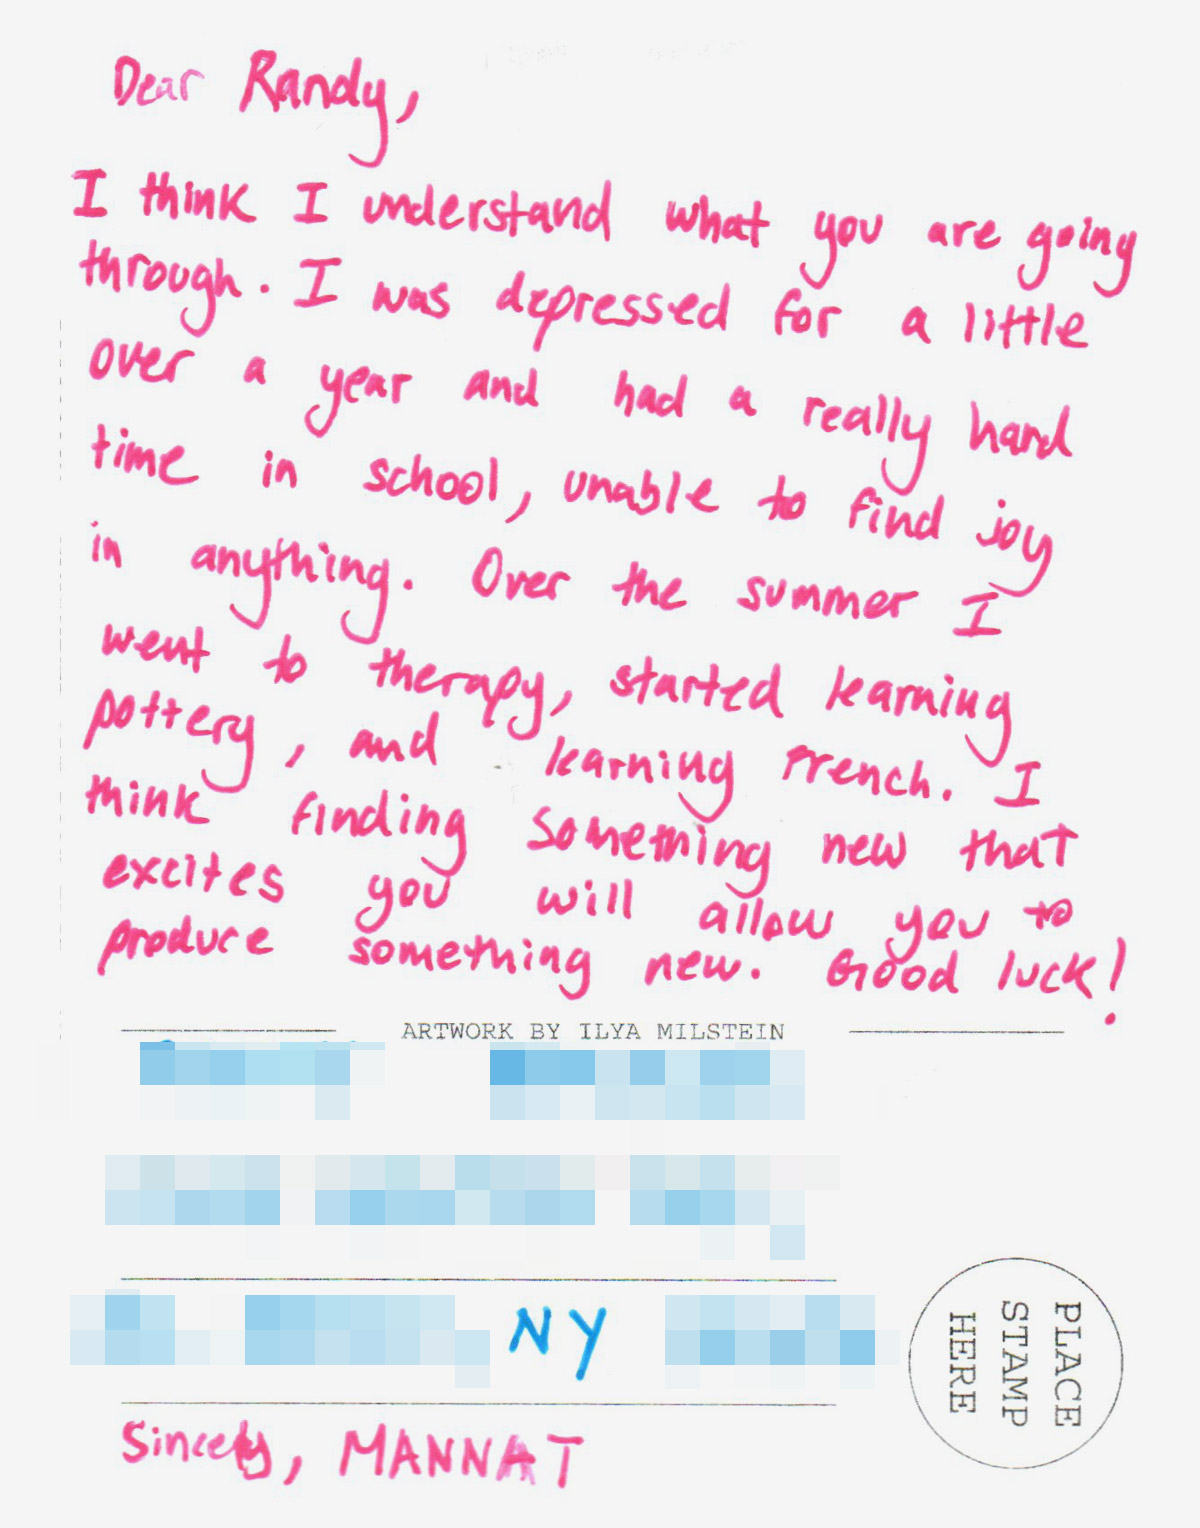 Dear Randy,
I think I understand what you are going
through. I was depressed for a little
over a year and had a really hard
time in school, unable to find joy
in anything. Over the summer I
went to therapy, started learning
pottery, and learning French. I
think finding something new that
excites you will allow you to
produce something new. Good luck!
ARTWORK BY ILYA MILSTEIN
NY
PLACE
STAMP
HERE
Sincely, MANNAT